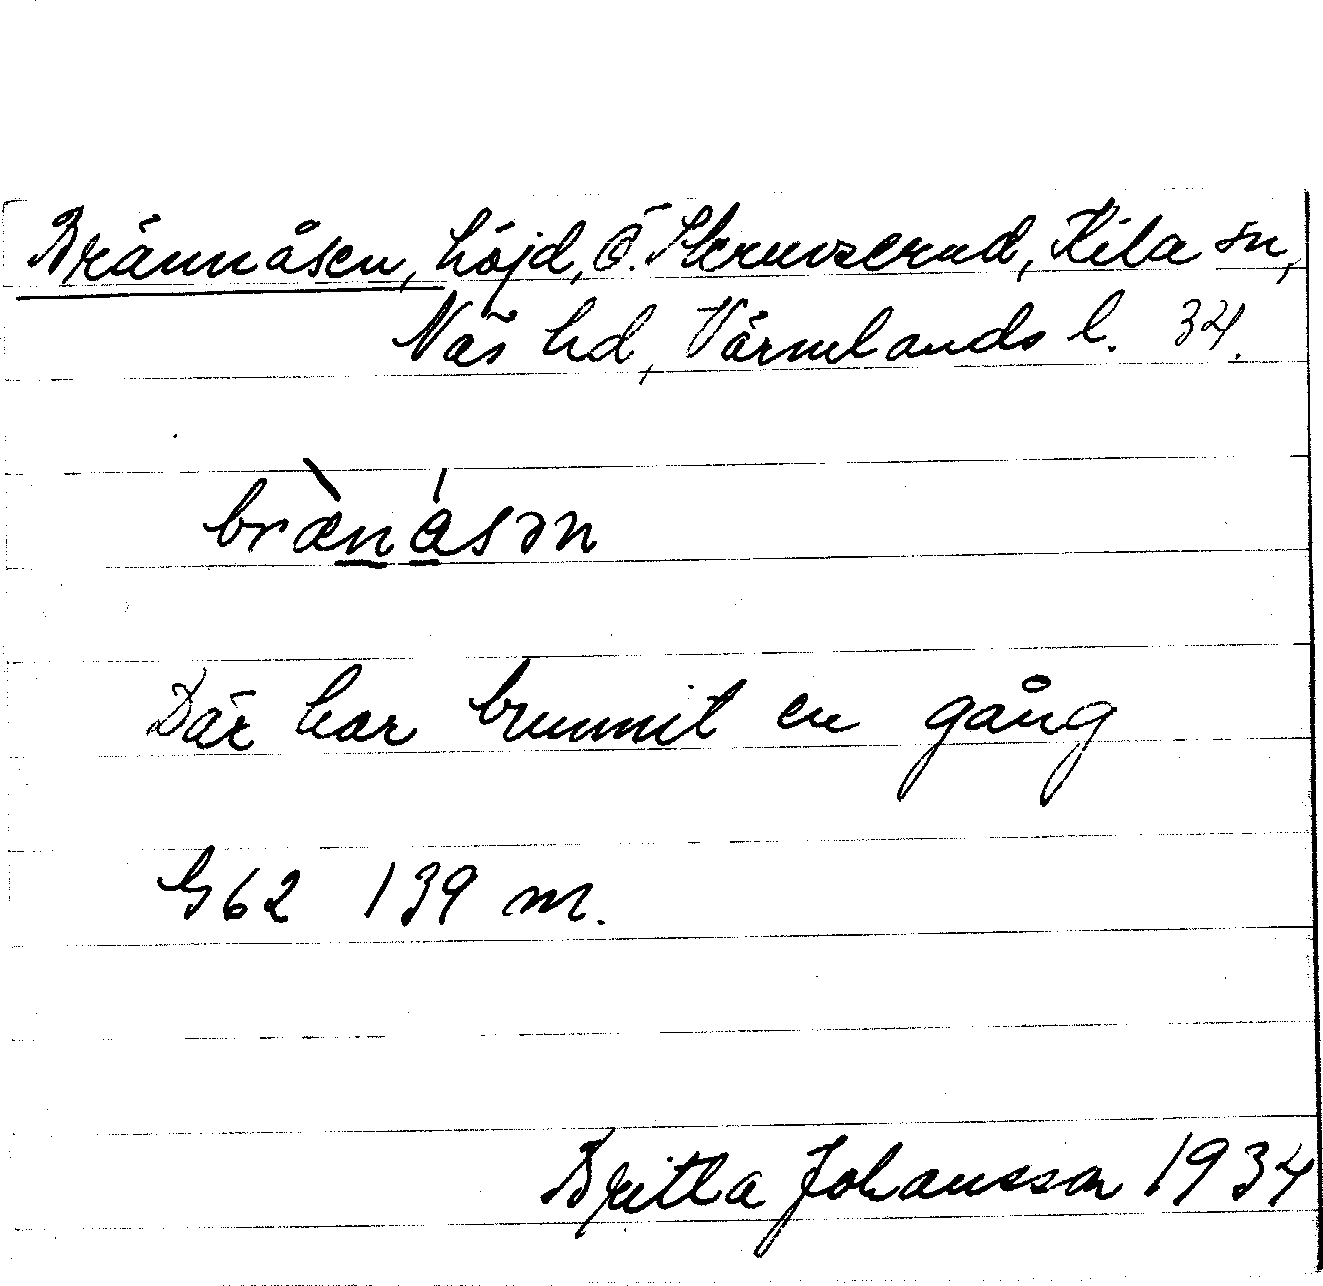 Brännåsen, höjd, Ö. Skruvserud, Kila sn,
Näs hd, Värmlands l. 34.
bræ̀nåsən
Där har brunnit en gång
G62 139 m.
Britta Johansson 1934